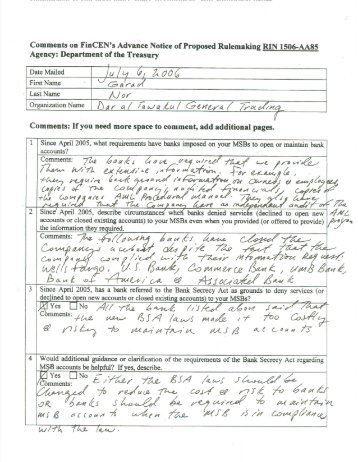 Comments on FinCEN's Advance Notice of Proposed Rulemaking RIN 1506-AA85
Agency: Department of the Treasury
Date Mailed July 6, 2006
First Name Garad
Last Name Nor
Organization Name Dar al Tawakul General Trading
Comments: If you need more space to comment, add additional pages.
1 Since April 2005, what requirements have banks imposed on your MSBs to open or maintain bank
accounts?
Comments: The banks have required that we provide
Them with extensive information, for example,
they require background information on owners & employees
copies of the company, audited financials, copies of
the companies AML Procedural manual. They also have
required that the company have an independent audit of the
AML
program
2 Since April 2005, describe circumstances when banks denied services (declined to open new
accounts or closed existing accounts) to your MSBs even when you provided (or offered to provide)
the information they required.
Comments: The following banks have closed the
Company's account despite the fact that the
company complied with their information request:
Wells Fargo, U.S. Bank, Commerce Bank, UMB Bank,
Bank of America & Associated Bank
3 Since April 2005, has a bank referred to the Bank Secrecy Act as grounds to deny services (or
declined to open new accounts or closed existing accounts) to your MSBs?
Yes No All the bank listed above said that
Comments: the new BSA laws made it too costly
& risky to maintain MSB accounts
4 Would additional guidance or clarification of the requirements of the Bank Secrecy Act regarding
MSB accounts be helpful? If yes, describe.
Yes No Either the BSA laws should be
Comments: changed to reduce the cost & risk to banks
OR banks should be required to maintain
MSB accounts when the MSB is in compliance
with the law.